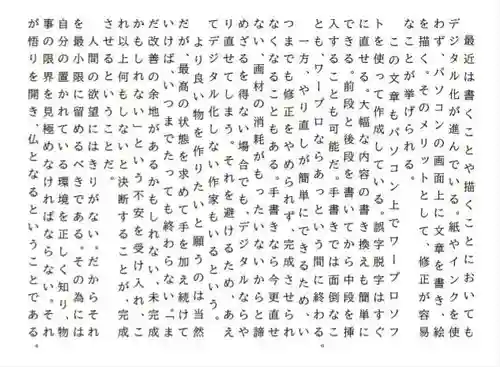 最近は書くことや描くことにおいても
デジタル化が進んでいる。紙やインクを使
わず、パソコンの画面上に文章を書き、絵
を描く。そのメリットとして、修正が容易
なことが挙げられる。
　この文章もパソコン上でワープロソフ
トを使って作成している。誤字脱字はすぐ
に直せる。大幅な内容の書き換えも簡単に
できる。前段と後段を書いてから中段を挿
入することも可能だ。手書きでは面倒なこ
とも、ワープロならあっという間に終わる。
　一方、やり直しが簡単にできるため、い
つまでも修正をやめられず、完成させられ
なくなることもある。手書きなら今更直せ
ない、画材の消耗がもったいないからと諦
めざるを得ない場合でも、デジタルならや
り直せてしまう。それを避けるため、あえ
てデジタル化しない作家もいるという。
　より良い物を作りたいと願うのは当然
だが、最高の状態を求めて手を加え続けて
いけば、いつまでたっても終わらない。「ま
だ改善の余地があるかもしれない、未完成
かもしれない」という不安を受け入れ、こ
れ以上何もしないと決断することが、完成
させるということだ。
　人間の欲望にはきりがない。だからそれ
を最小限に留めるべきである。その為には
自分の置かれている環境を正しく知り、物
事の限界を見極めなければならない。それ
が悟りを開き、仏となるということである。